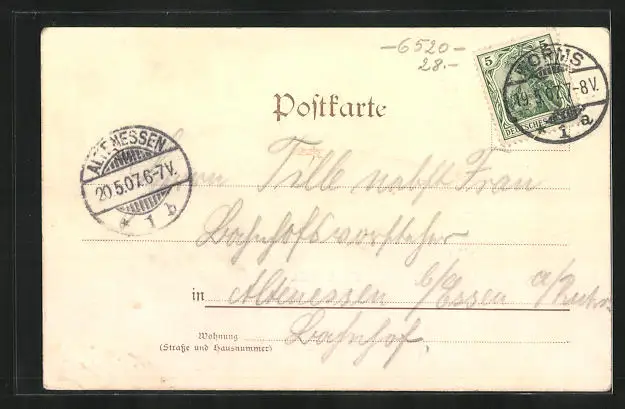 -6520-
28.-
5 5
DEUTSCHES
WORMS
19.5.07.7-8V.
* 1 a
Postkarte
ALTENESSEN
20.5.07.6-7V.
* 1 b
Herrn Tille nebst Frau
Bahnhofsvorsteher
in Altenessen b/Essen a/Ruhr
Wohnung
(Straße und Hausnummer)
Bahnhof.